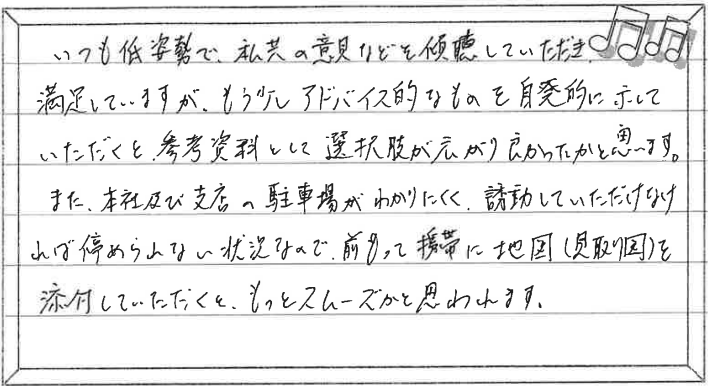 いつも低姿勢で、私共の意見などを傾聴していただき、
満足していますが、もう少しアドバイス的なものを自発的に示して
いただくと、参考資料として選択肢が広がり良かったかと思います。
また、本社及び支店の駐車場がわかりにくく、誘動していただけなけ
れば停められない状況なので、前もって携帯に地図(見取り図)を
添付していただくと、もっとスムーズかと思われます。